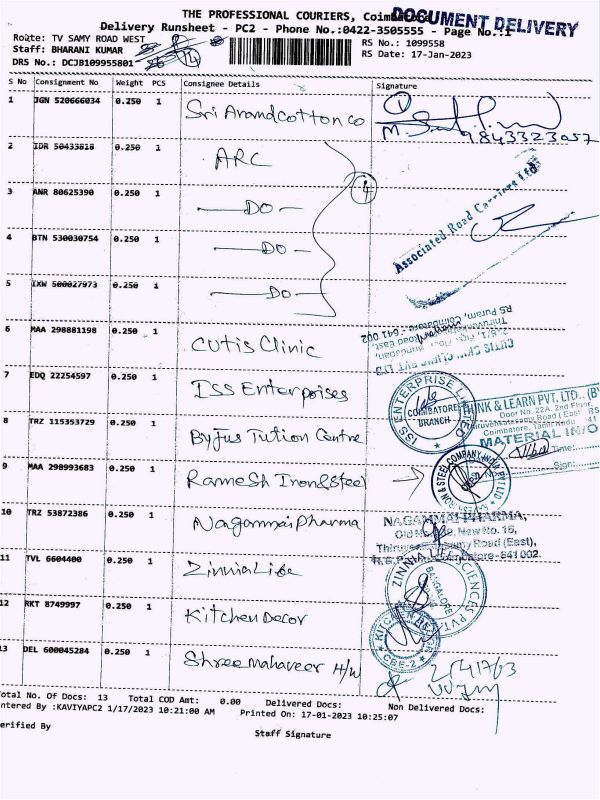 THE PROFESSIONAL COURIERS, Coimbatore
DOCUMENT DELIVERY
Delivery Runsheet - PC2 - Phone No.:0422-3505555 - Page No.:1
Route: TV SAMY ROAD WEST
RS No.: 1099558
Staff: BHARANI KUMAR
RS Date: 17-Jan-2023
DRS No.: DCJB109955801
14
S No Consignment No Weight PCS Consignee Details Signature
1 JGN 520666034 0.250 1 Sri Anandcotton co
1
9843323057
2 IDR 50433818 0.250 1 ARC
3 ANR 80625390 0.250 1 — DO —
4
Associated Road Carriers Ltd.
4 BTN 530030754 0.250 1 — DO —
5 IXW 500027973 0.250 1 — DO —
6 MAA 298881198 0.250 1 Cutis Clinic
RS Puram, Coimbatore - 641 002
CUTIS SKIN CLINIC PVT LTD
7 EDQ 22254597 0.250 1 ISS Enterpoises
ISS ENTERPRISE LIMITED
COIMBATORE
BRANCH
INK & LEARN PVT. LTD., (BY
Door No. 22A, 2nd Floor,
Coimbatore, Tamil Nadu
MATERIAL IN/O
Time:
Sign:
8 TRZ 115353729 0.250 1 Byjus Tution Centre
9 MAA 298993683 0.250 1 Ramesh Iron&steel
& STEEL COMPANY INDIA PVT LTD
10 TRZ 53872386 0.250 1 Nagammai Pharma
NAGAMMAI PHARMA,
Old No. New No. 16,
Road (East),
Coimbatore-641 002.
11 TVL 6604400 0.250 1 Zinnia Life
ZINNIA LIFE SCIENCES PVT.
BANGALORE
12 RKT 8749997 0.250 1 Kitchen Decor
KITCHEN DECOR
CBE-2
13 DEL 600045284 0.250 1 Shree mahaveer H/W
Total No. Of Docs: 13 Total COD Amt: 0.00 Delivered Docs: Non Delivered Docs:
ntered By :KAVIYAPC2 1/17/2023 10:21:00 AM Printed On: 17-01-2023 10:25:07
erified By
Staff Signature